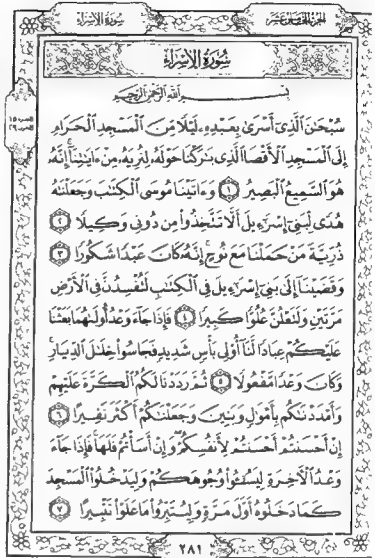 سُورَةُ الإِسْرَاءِ
الجزء الخامس عشر
الحزب ٢٩
سُورَةُ الإِسْرَاءِ
بِسْمِ اللَّهِ الرَّحْمَٰنِ الرَّحِيمِ
سُبْحَٰنَ ٱلَّذِىٓ أَسْرَىٰ بِعَبْدِهِۦ لَيْلًا مِّنَ ٱلْمَسْجِدِ ٱلْحَرَامِ
إِلَى ٱلْمَسْجِدِ ٱلْأَقْصَا ٱلَّذِى بَٰرَكْنَا حَوْلَهُۥ لِنُرِيَهُۥ مِنْ ءَايَٰتِنَآ إِنَّهُۥ
هُوَ ٱلسَّمِيعُ ٱلْبَصِيرُ ١ وَءَاتَيْنَا مُوسَى ٱلْكِتَٰبَ وَجَعَلْنَٰهُ
هُدًى لِّبَنِىٓ إِسْرَٰٓءِيلَ أَلَّا تَتَّخِذُوا۟ مِن دُونِى وَكِيلًا ٢
ذُرِّيَّةَ مَنْ حَمَلْنَا مَعَ نُوحٍ إِنَّهُۥ كَانَ عَبْدًا شَكُورًا ٣
وَقَضَيْنَآ إِلَىٰ بَنِىٓ إِسْرَٰٓءِيلَ فِى ٱلْكِتَٰبِ لَتُفْسِدُنَّ فِى ٱلْأَرْضِ
مَرَّتَيْنِ وَلَتَعْلُنَّ عُلُوًّا كَبِيرًا ٤ فَإِذَا جَآءَ وَعْدُ أُولَىٰهُمَا بَعَثْنَا
عَلَيْكُمْ عِبَادًا لَّنَآ أُو۟لِى بَأْسٍ شَدِيدٍ فَجَاسُوا۟ خِلَٰلَ ٱلدِّيَارِ
وَكَانَ وَعْدًا مَّفْعُولًا ٥ ثُمَّ رَدَدْنَا لَكُمُ ٱلْكَرَّةَ عَلَيْهِمْ
وَأَمْدَدْنَٰكُم بِأَمْوَٰلٍ وَبَنِينَ وَجَعَلْنَٰكُمْ أَكْثَرَ نَفِيرًا ٦
إِنْ أَحْسَنتُمْ أَحْسَنتُمْ لِأَنفُسِكُمْ وَإِنْ أَسَأْتُمْ فَلَهَا فَإِذَا جَآءَ
وَعْدُ ٱلْءَاخِرَةِ لِيَسُۥٓـُٔوا۟ وُجُوهَكُمْ وَلِيَدْخُلُوا۟ ٱلْمَسْجِدَ
كَمَا دَخَلُوهُ أَوَّلَ مَرَّةٍ وَلِيُتَبِّرُوا۟ مَا عَلَوْا۟ تَتْبِيرًا ٧
٢٨١